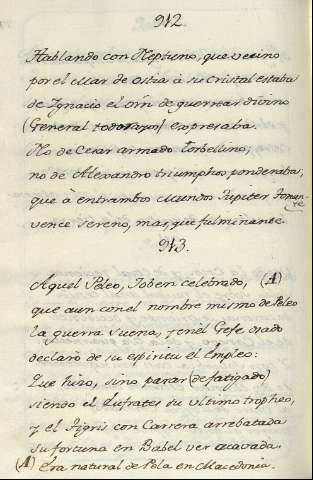 912.
Hablando con Neptuno, que vecino
por el Mar de Ostia à su cristal estaba
de Ignacio el òrn de guerrear divino
(General todo rayos) expresaba.
No de Cesar armado torbellino;
no de Alexandro triumphos ponderaba,
que à entrambos Mundos Jupiter Tonante
vence sereno, mas que fulminante.
913.
Aquel Peleo, Joben celebrado, (A)
que aun con el nombre mismo de Peleo
la guerra suena, y en el Gefe osado
declarò de su espiritu el Empleo:
Que hizo, sino parar (de fatigado)
siendo el Eufrates su ultimo tropheo,
y el Tigris con Carrera arrebatada
su fortuna en Babel ver acavada.
(A) Era natural de Pela en Macedonia.